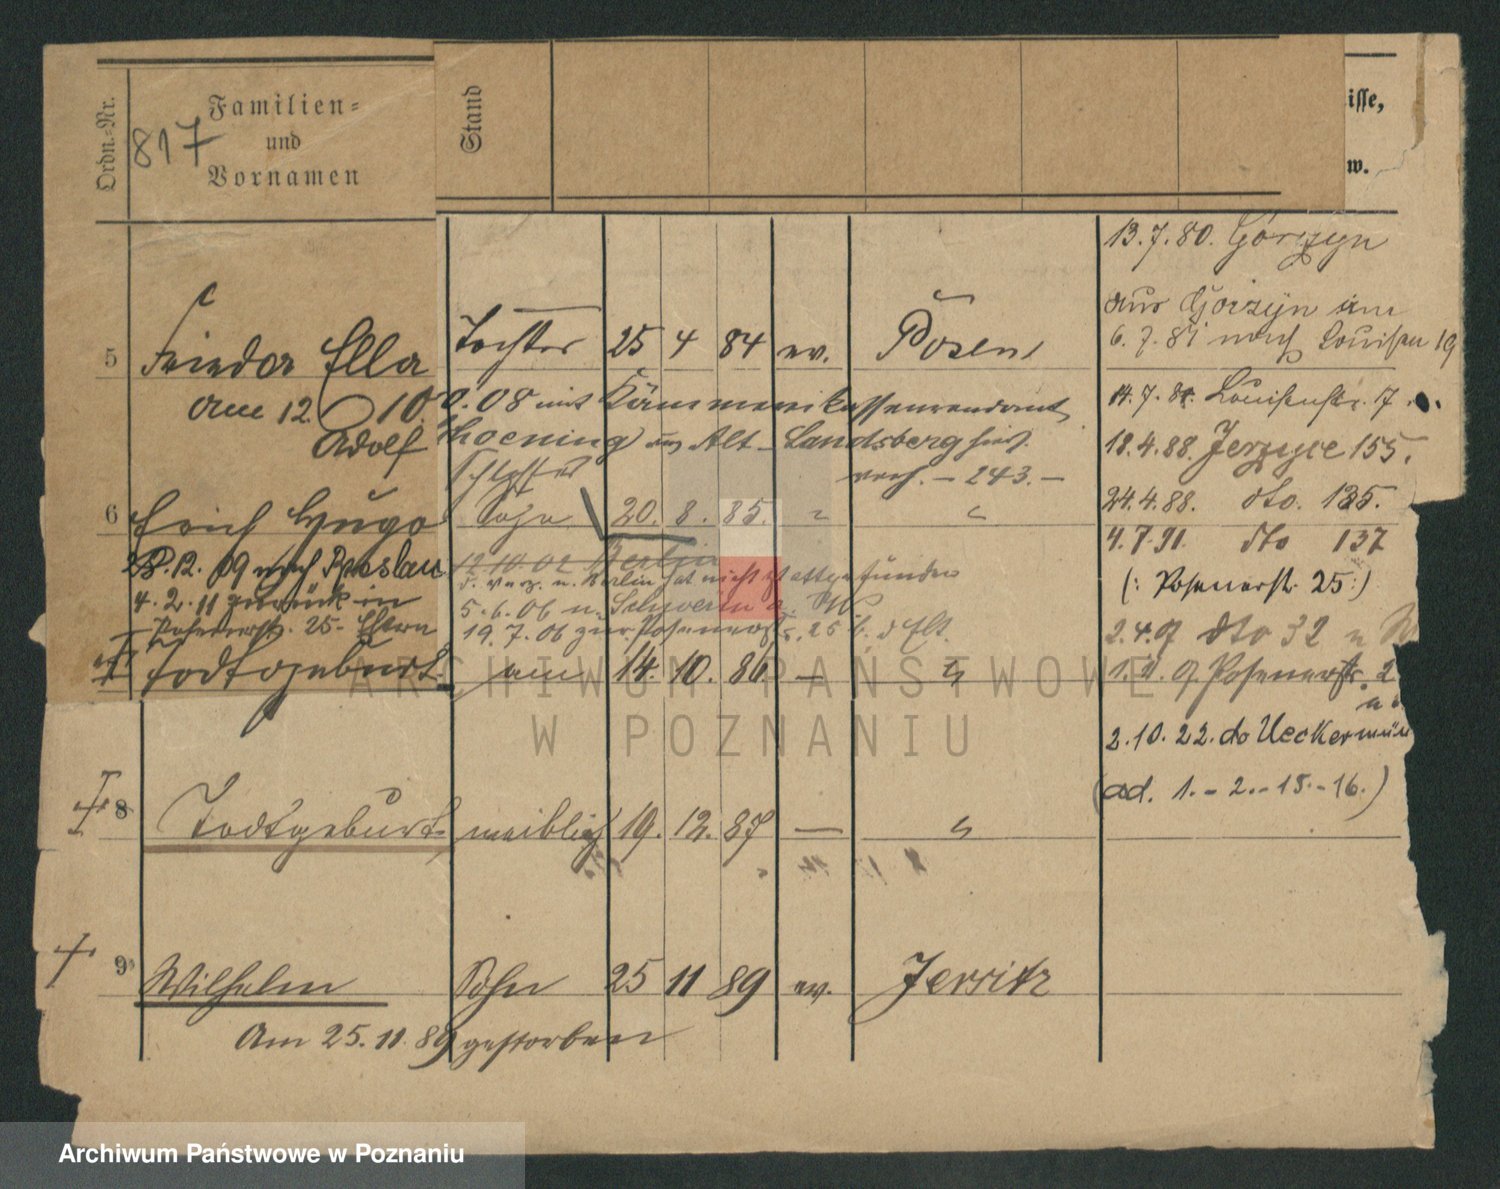 Ordn.-Nr.
817
Familien-
und
Vornamen
Stand
isse,
w.
13.7.80. Górczyn
aus Gorczyn am
6.7.81 nach Louisen 19
5 Frieda Ella Tochter 25 4 84 ev. Posen
14.7.81. Louisenstr. 17.
am 12. 10. 08 mit Kämmereikassenrendant
Adolf Thoening aus Alt-Landsberg hies.
18.4.88. Jerzyce 155.
verh. - 243. -
24.4.88. dto. 135.
6 Erich Hugo Sohn 20. 8. 85. " "
4.7.91. dto 137
(: Posenerstr. 25:)
28.12.09 nach Breslau 12.10.02 Berlin
d. verz. n. Berlin hat nicht stattgefunden
4.2.11 zurück in 5.6.06 n. Schwerin a. W.
Posenerstr. 25 Eltern 19.7.06 zur Posenerstr. 25 b. d Elt.
2.4.9 dto 32
Todtgeburt am 14. 10. 86 — "
Posenerstr. 2
2.10.22. do Ueckermün
(ad. 1.-2.-15.-16.)
8 Todtgeburt weiblich 19. 12. 87 — "
9 Wilhelm Sohn 25 11 89 ev. Jersitz
Am 25.11.89 gestorben
ARCHIWUM PAŃSTWOWE
W POZNANIU
Archiwum Państwowe w Poznaniu